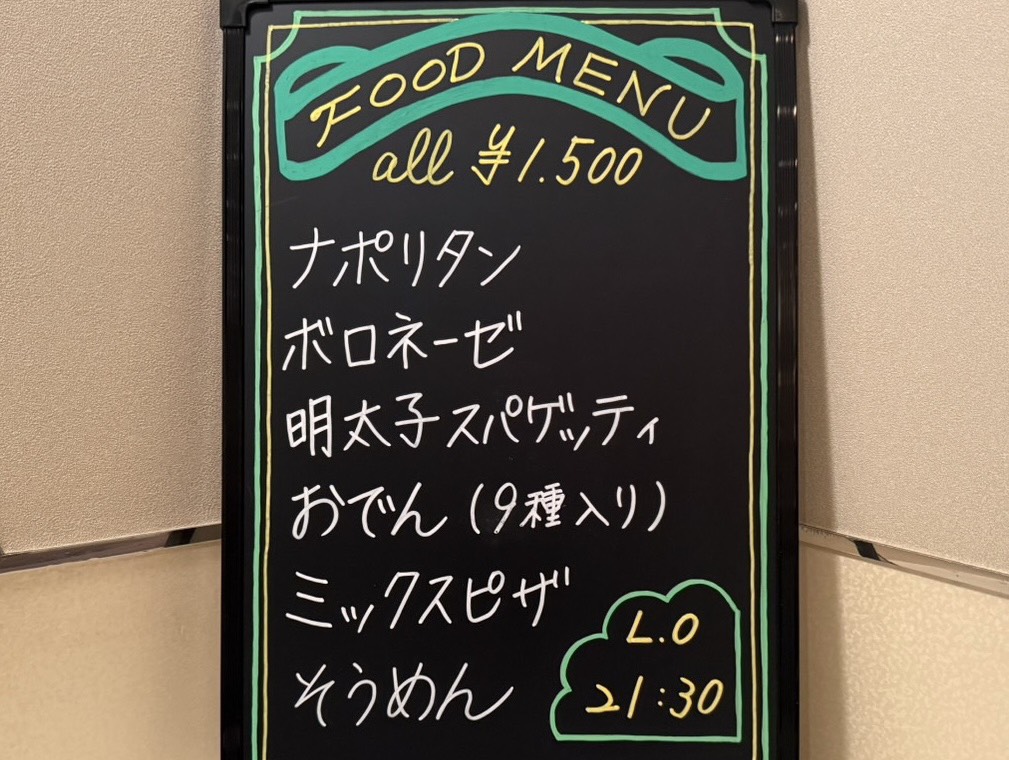 FOOD MENU
all ¥1.500
ナポリタン
ボロネーゼ
明太子スパゲッティ
おでん(9種入り)
ミックスピザ
そうめん
L.O
21:30